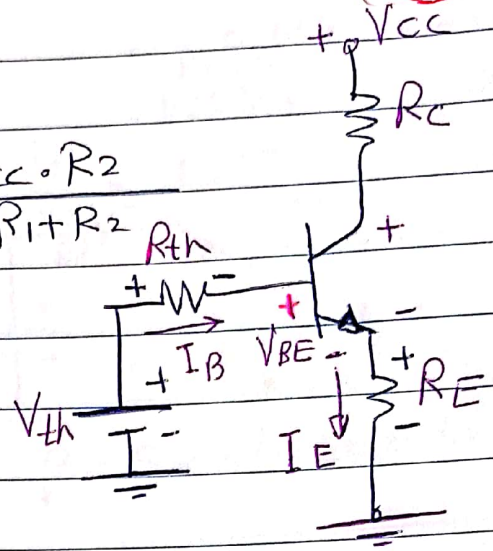 + Vcc
Rc
c. R2
R1+R2
+
Rth
+ -
+ -
IB VBE -
+
+ RE
Vth
-
IE -